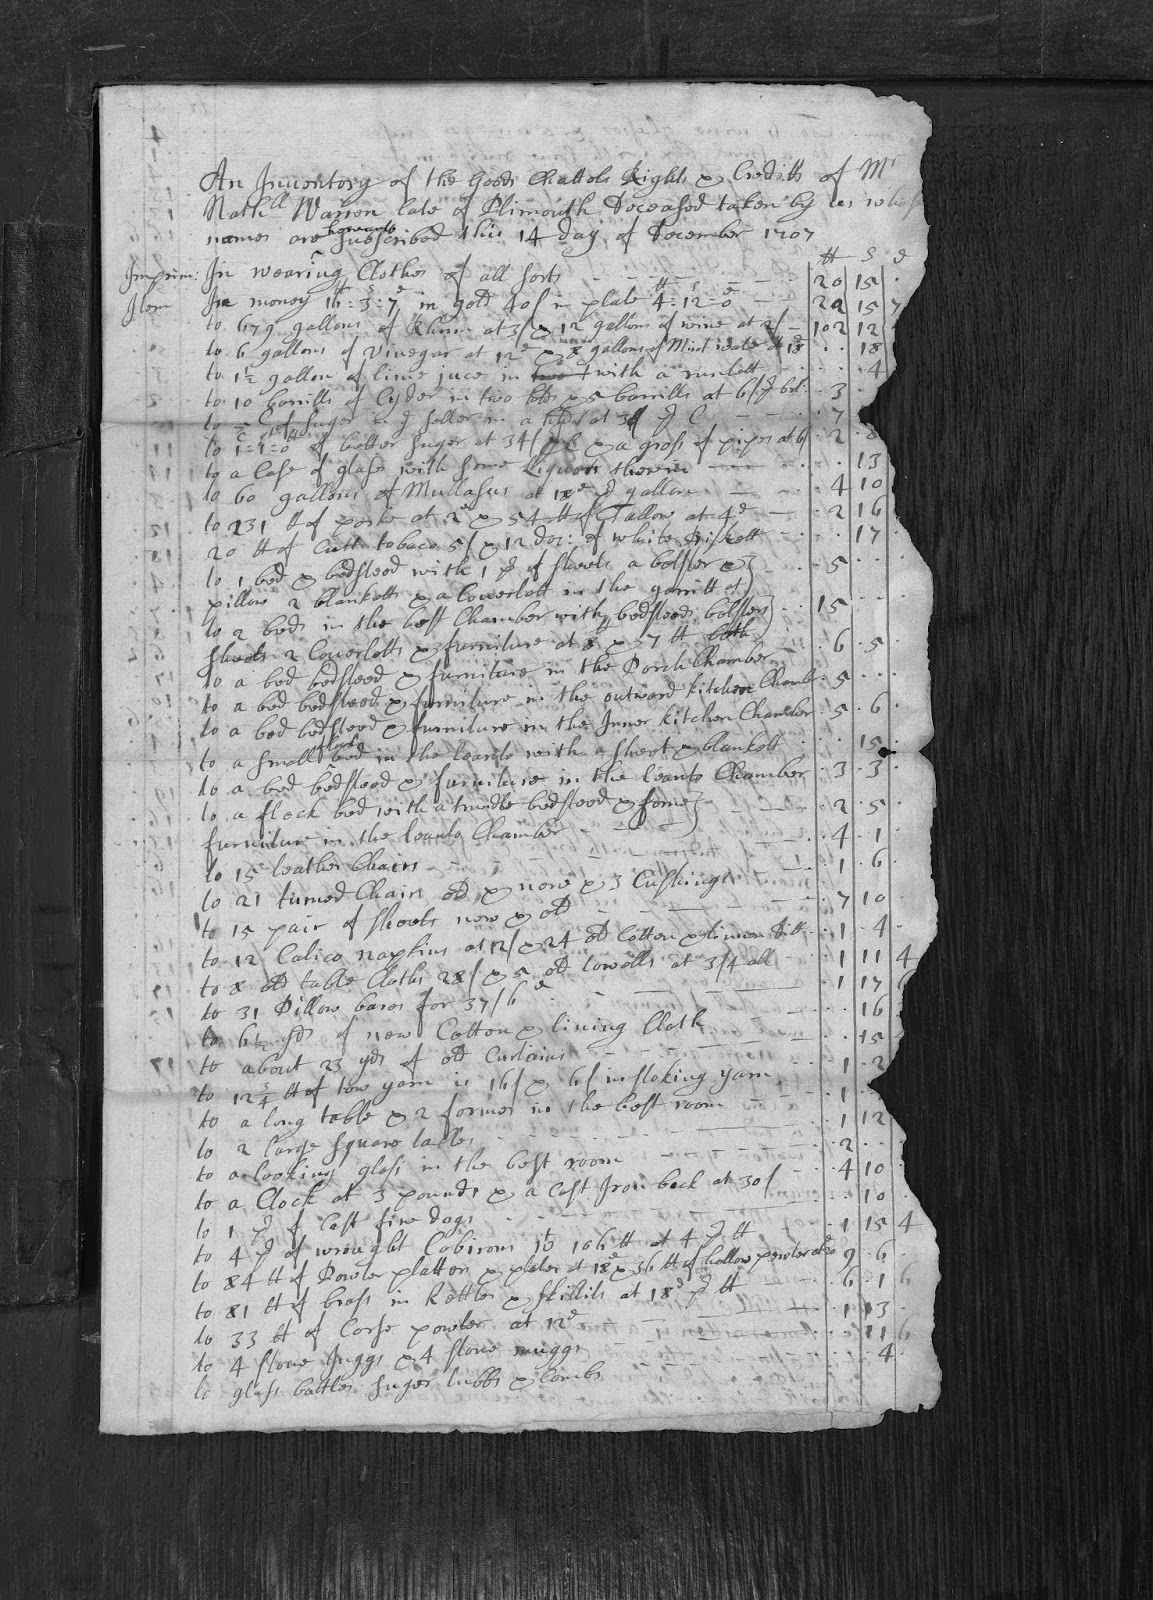 An Inventory of the Goods Chattels Rights & Credits of Mr
Nathll Warren late of Plimouth Deceased taken by us whose
names are hereunto subscribed this 14 day of December 1707
tt s d
Imprim: In wearing Clothes of all sorts 20 15
Item In money 16tt : 3s : 7d in gold 40/ in plate 4tt : 12s = 0d 22 15 7
to 679 gallons of Rhum at 3/ & 12 gallons of wine at 2/ 102 12
to 6 gallons of Vinegar at 12d & 8 gallons of Mint water at 18d 18
to 1½ gallon of lime juce in with a runlett 4
to 10 barrills of Cyder in two & 5 barrills at 6/ p 3
to of Suger in ye seller in a at p C 7
to 1 = 1 = 0 of better Suger at 34/ p C & a gross of pipes at 2 8
to a Case of glass with some Liquors therein 13
to 60 gallons of Mullasus at 18d p gallon 4 10
to 231 tt of porke at 2d & 54 tt of Tallow at 4d 2 16
20 tt of Cutt tobaco 5/ & 12 doz: of white Biskett 17
to 1 bed & bedsteed with 1 p of sheets a bolster &
pillow 2 blanketts & a Coverlett in the garritt at 5
to 2 beds in the best Chamber with bedsteeds bolsters
sheets 2 Coverletts & furniture at 8tt & 7 tt both 15
to a bed bedsteed & furniture in the Porch Chamber 6 5
to a bed bedsteed & furniture in the outward kitchen Chamb: 5
to a bed bedsteed & furniture in the Inner kitchen Chamber 5 6
to a small flock bed in the leanto with a sheet & blankett 15
to a bed bedsteed & furniture in the leanto Chamber 3 3
to a flock bed with a trundle bedsteed & some
furniture in the leanto Chamber 2 5
to 15 leather Chairs 4 1
to 21 turned Chairs old & new & 3 Cushings 1 6
to 15 pair of sheets new & old 7 10
to 12 Calico napkins at 12/ & 24 old Cotton & linnen ditt 1 4
to 8 old table Cloths 28/ & 5 old towells at 3/4 all 1 11 4
to 31 Pillow bares for 37/6d 1 17 6
to 6½ yds of new Cotton & lining Cloth 16
to about 23 yds of old Curtains 15
to 12¾ tt of tow yarn is 16/ & 6/ in stoking yarn 1 2
to a long table & 2 formes in the best room 1
to 2 large square tables 1 12
to a looking glass in the best room 2
to a Clock at 3 pounds & a Cast Iron back at 30/ 4 10
to 1 p of Cast fire dogs 10
to 4 p of wrought Cobirons 106 tt at 4 p tt 1 15 4
to 84 tt of Pewter platters & plates at 18d & 36 tt of hollow pewter at 9 6
to 81 tt of brass in Kettles & skillits at 18d p tt 6 1 6
to 33 tt of Corse pewter at 12d 1 13
to 4 stone Juggs & 4 stone muggs 11 6
to glass bottles suger tubbs & combs 4